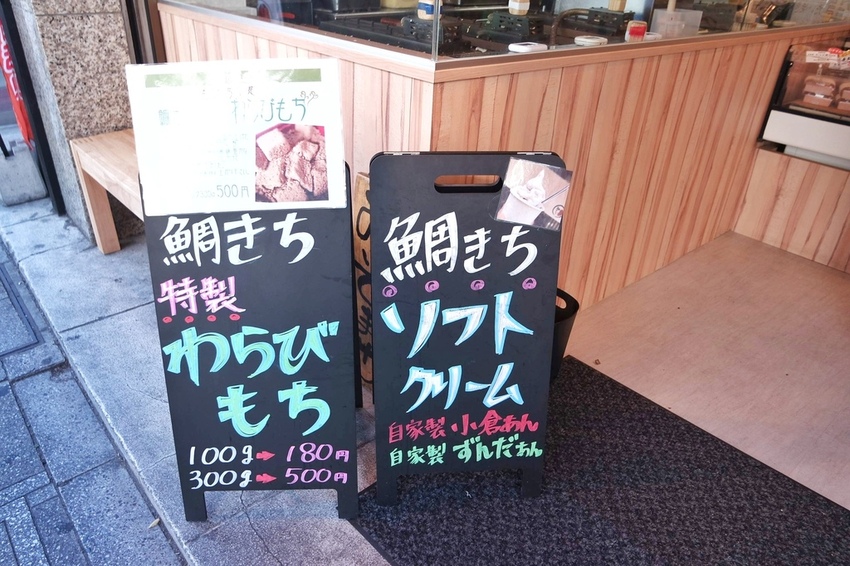 わらびもち
500円
鯛きち
特製
わらび
もち
100g➡180円
300g➡500円
鯛きち
ソフト
クリーム
自家製 小倉あん
自家製 ずんだあん